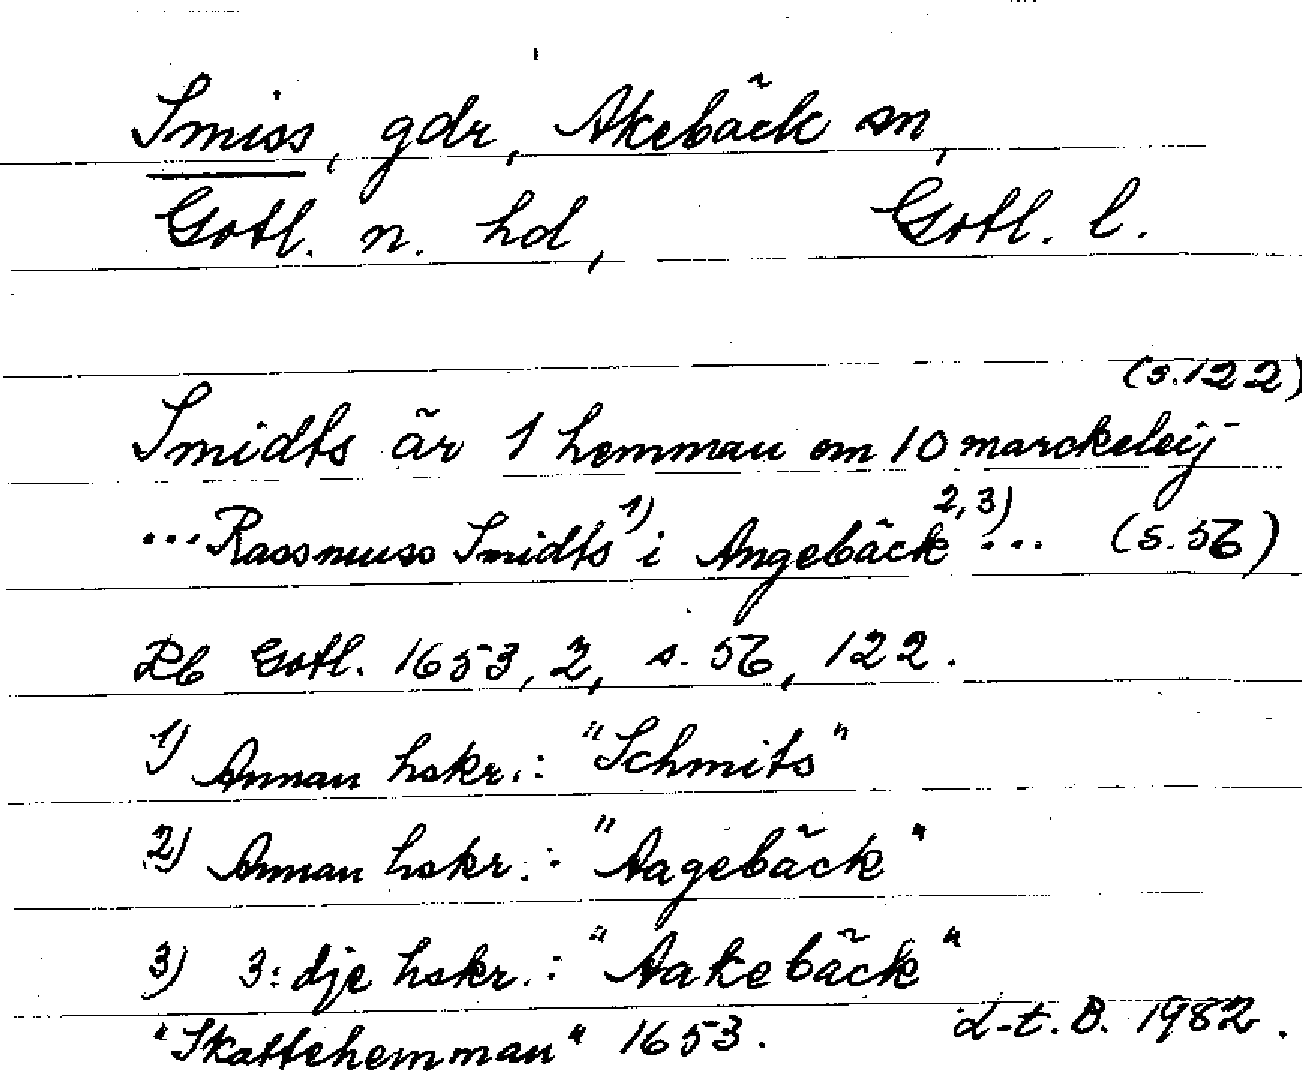 Smiss, gdr, Akebäck sn,
Gotl. n. hd, Gotl. l.
(s.122)
Smidts är 1 hemman om 10 marckeleij
... Rassmuss Smidts 1) i Angebäck 2,3) ... (s.56)
Rb Gotl. 1653, 2, s. 56, 122.
1) Annan hskr.: "Schmits"
2) Annan hskr.: "Aagebäck"
3) 3:dje hskr.: "Aakebäck"
"Skattehemman" 1653. L-t. B. 1982.